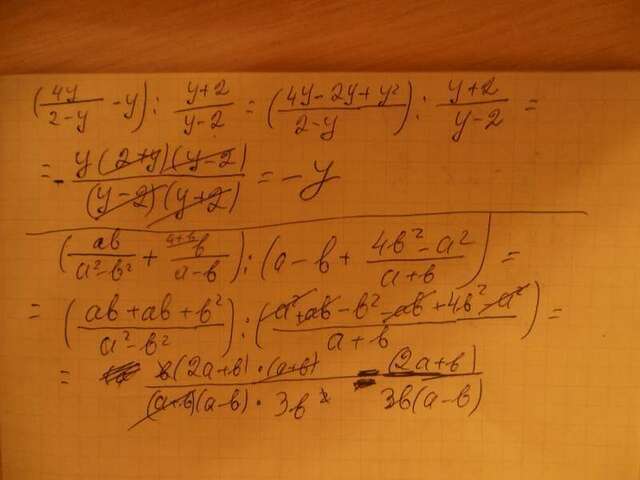 (4y/2-y - y) : y+2/y-2 = (4y-2y+y²/2-y) : y+2/y-2 =
= - y(2+y)(y-2)/(y-2)(y+2) = -y
(ab/a²-b² + a+b b/a-b) : (a-b+ 4b²-a²/a+b) =
= (ab+ab+b²/a²-b²) : (a²+ab-b²-ab+4b²-a²/a+b) =
= b(2a+b)·(a+b)/(a+b)(a-b)·3b² = (2a+b)/3b(a-b)